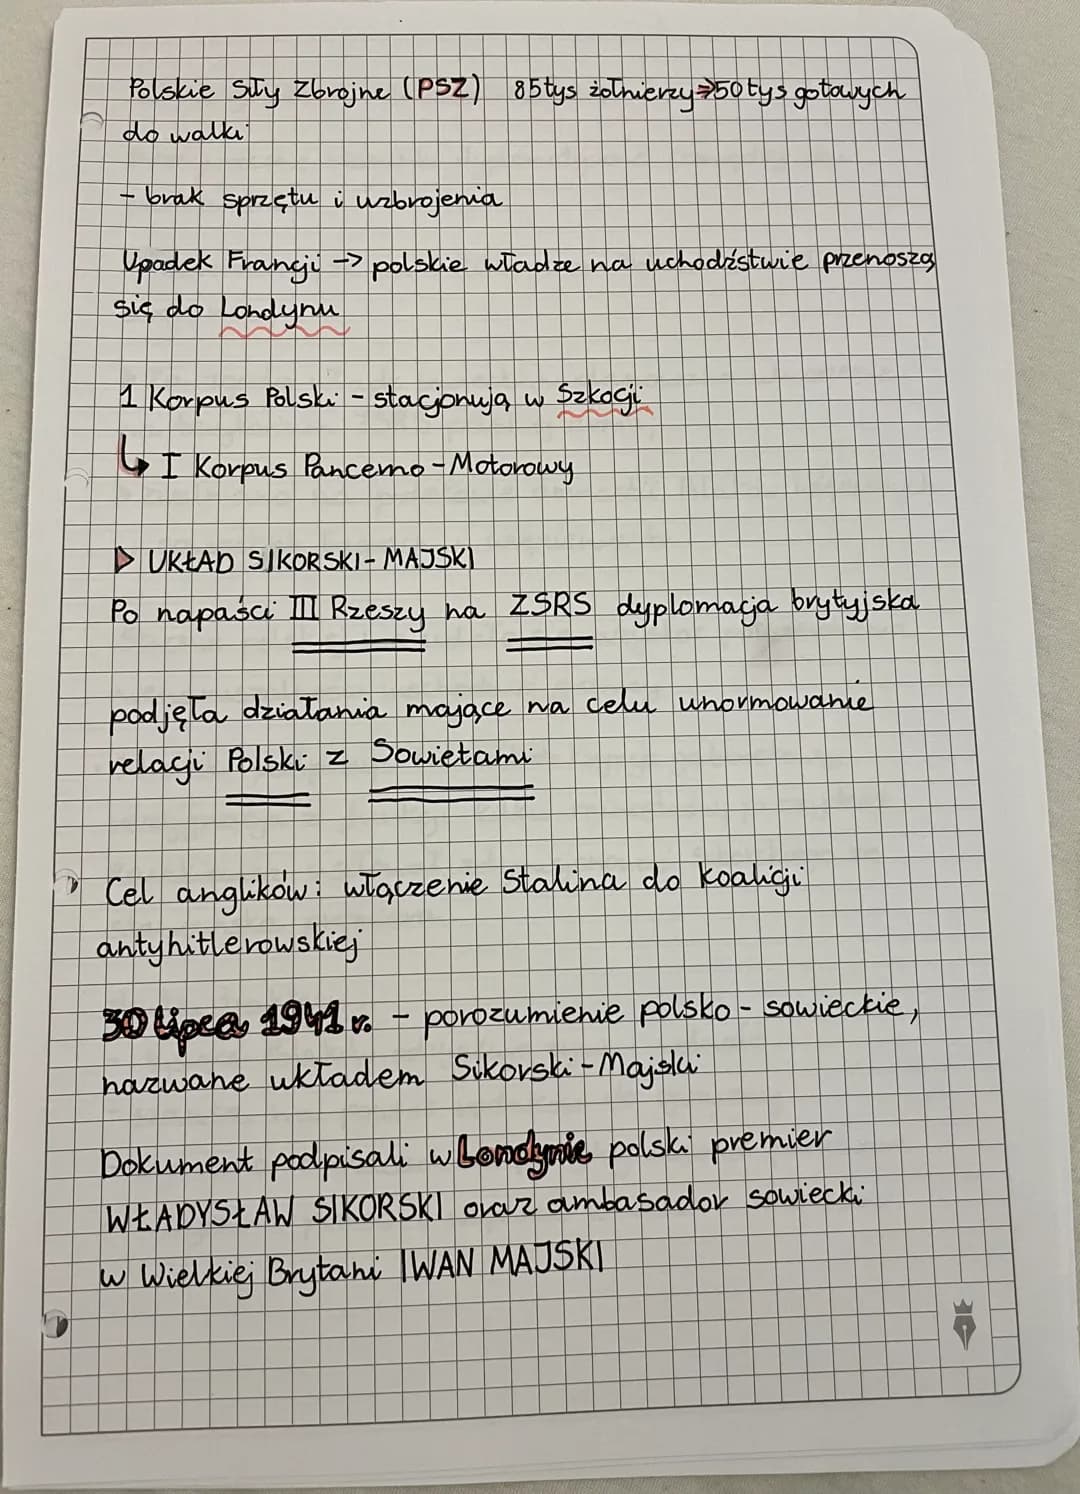 Polskie Siły Zbrojne (PSZ) 85tys żołnierzy⇒50tys gotowych
do walki
- brak sprzętu i uzbrojenia
Upadek Francji -> polskie władze na uchodźstwie przenoszą
się do Londynu
1 Korpus Polski - stacjonują w Szkocji
↳ I Korpus Pancerno-Motorowy
▷ UKŁAD SIKORSKI-MAJSKI
Po napaści III Rzeszy na ZSRS dyplomacja brytyjska
podjęła działania mające na celu unormowanie
relacji Polski z Sowietami
Cel anglików: włączenie Stalina do koalicji
antyhitlerowskiej
30 lipca 1941 r. - porozumienie polsko-sowieckie,
nazwane układem Sikorski-Majski
Dokument podpisali w Londynie polski premier
WŁADYSŁAW SIKORSKI oraz ambasador sowiecki
w Wielkiej Brytani IWAN MAJSKI